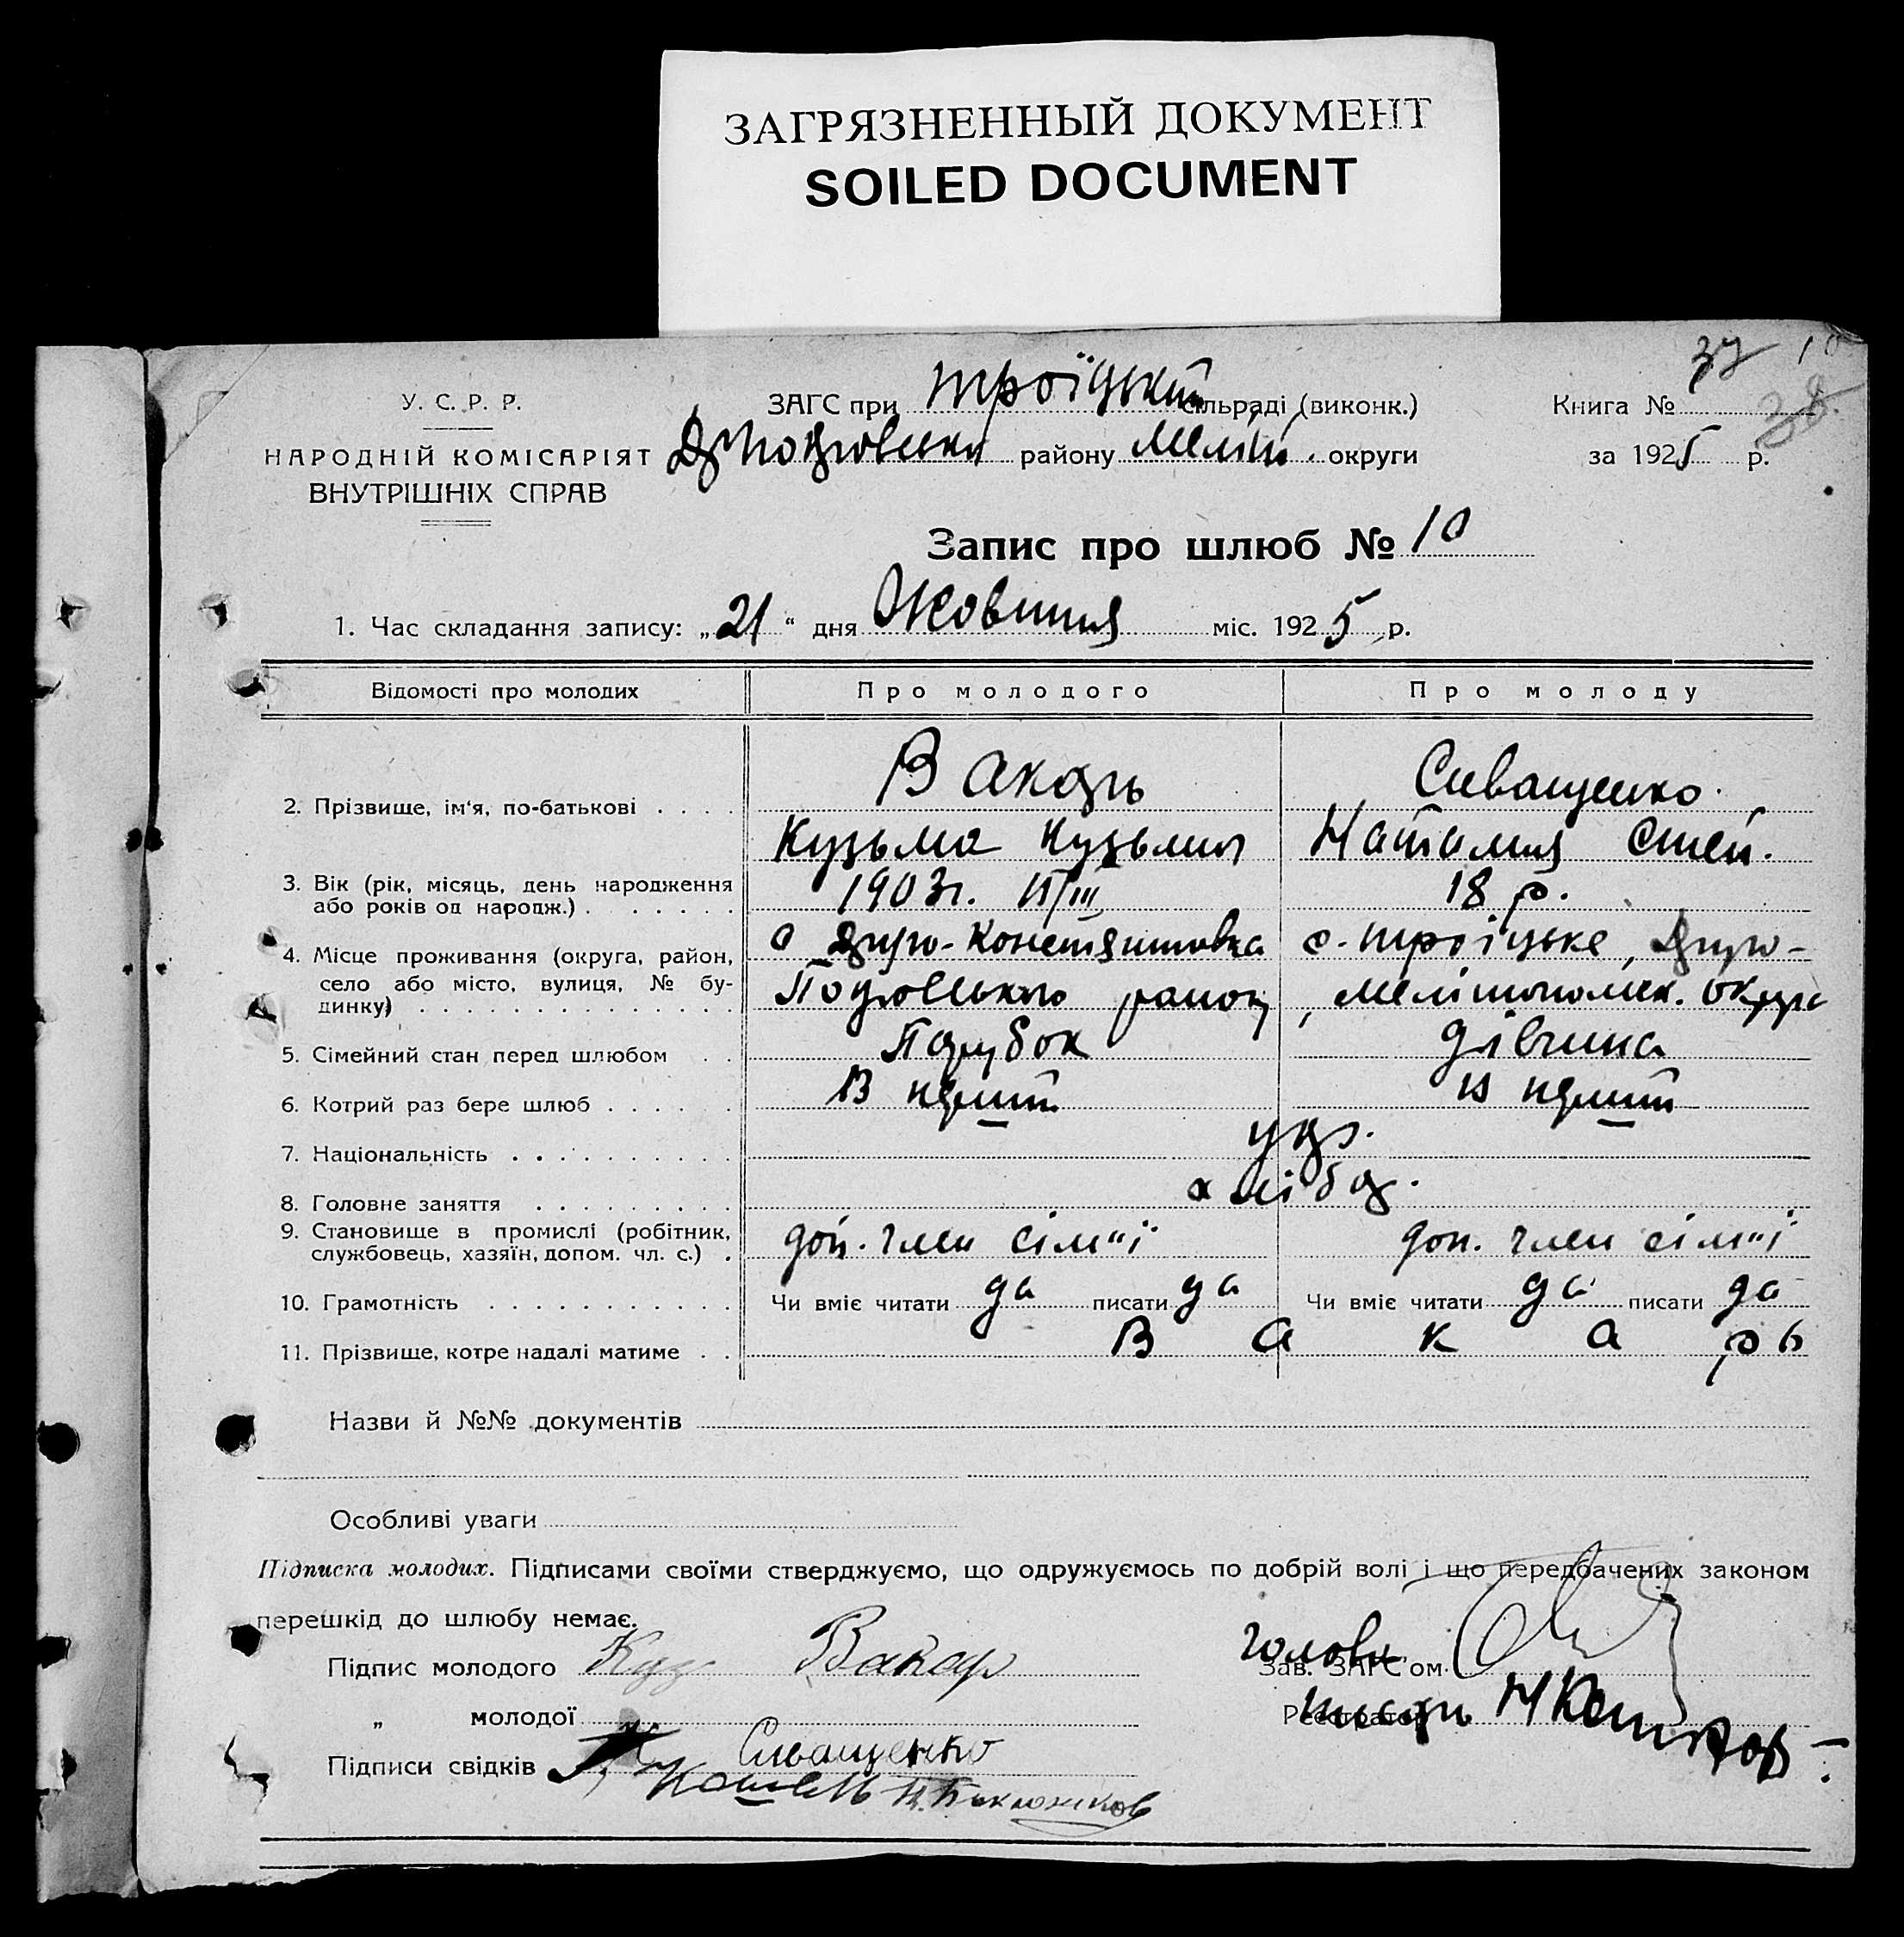 ЗАГРЯЗНЕННЫЙ ДОКУМЕНТ
SOILED DOCUMENT
У. С. Р. Р.
НАРОДНІЙ КОМІСАРІЯТ
ВНУТРІШНІХ СПРАВ
ЗАГС при Троїцький сільраді (виконк.)
району Меліт. округи
Книга № 37 10
38
за 1925 р.
Запис про шлюб № 10
1. Час складання запису: „21“ дня Жовтня міс. 1925 р.
Відомості про молодих Про молодого Про молоду
2. Прізвище, ім‘я, по-батькові . . . . Вакарь Сиващенко
Кузьма Кузьмич Наталия Степ.
3. Вік (рік, місяць, день народження або років од народж.) . . . . . . 1903 г. 18 р.
4. Місце проживання (округа, район, село або місто, вулиця, № будинку) . . . . . . с. Троїцьке,
Мелітопольск. округи
5. Сімейний стан перед шлюбом . . Парубок дівчина
6. Котрий раз бере шлюб . . . . . . В перший в перший
7. Національність . . . . . . . . . . укр.
8. Головне заняття . . . . . . . . . хлібор.
9. Становище в промислі (робітник, службовець, хазяїн, допом. чл. с.) . доп. член сім"ї доп. член сім"ї
10. Грамотність . . . . . . . . . . . Чи вміє читати да писати да Чи вміє читати да писати да
11. Прізвище, котре надалі матиме . . В а к а р ь
Назви й №№ документів
Особливі уваги
Підписка молодих. Підписами своїми стверджуємо, що одружуємось по добрій волі і що передбачених законом
перешкід до шлюбу немає.
Підпис молодого Куз Вакар
Голова
Зав. ЗАГС‘ом
„ молодої
Реєстратор
Підписи свідків Сиващенко